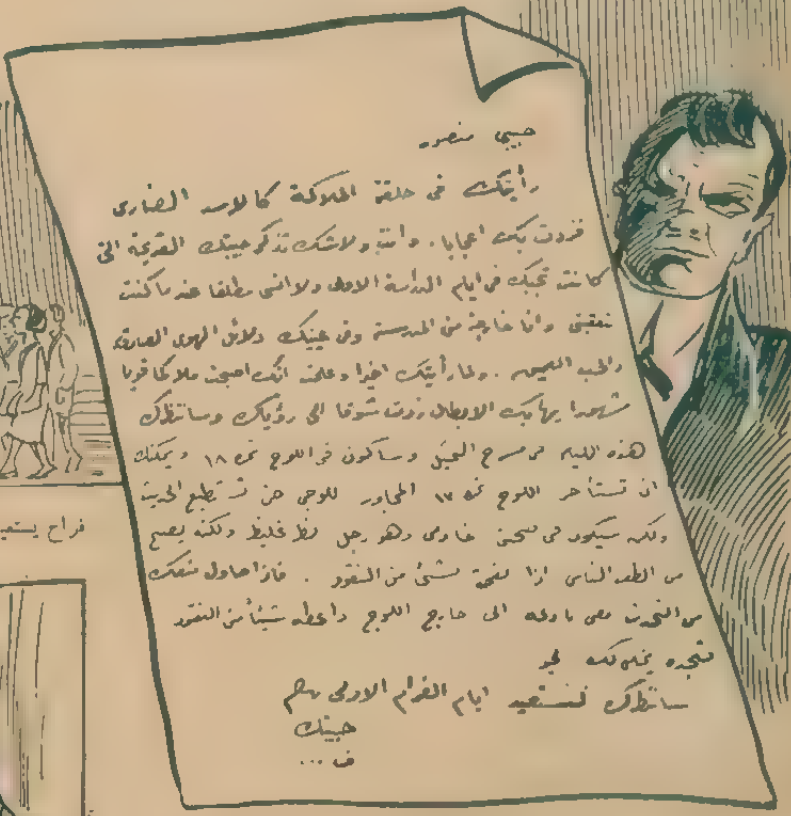 حبيبى منصور
رأيتك فى حلقة الملاكمة كالاسد الضارى
فزدت بك اعجابا . وأنت ولاشك تذكر حبيبتك القديمة التى
كانت تحبك فى ايام الدراسة الاولى ولا انسى مطلقا عندما كنت
وانا خارجة من المدرسة وفى عينيك دلائل الهوى الصادق
والحب العميق . ولما رأيتك اخيرا وعلمت انك اصبحت ملاكما قويا
مشهورا يهابك الابطال زدت شوقا الى رؤيتك وسانتظرك
هذه الليلة فى مسرح وسأكون فى اللوج نمرة ١٨ ويمكنك
ان تستأجر اللوج نمرة ١٧ المجاور للوجى حتى تستطيع الحديث
ولكن سيكون فى خادمى وهو رجل فظ غليظ ولكنه يصبح
من الطف الناس اذا نفحته بشئ من النقود . فاذا حاول منعك
من التحدث معى الى خارج اللوج واعطه شيئا من النقود
تجده
سانتظرك لنستعيد ايام الغرام الاولى
حبيبتك
ف ...
فراح يستعيد